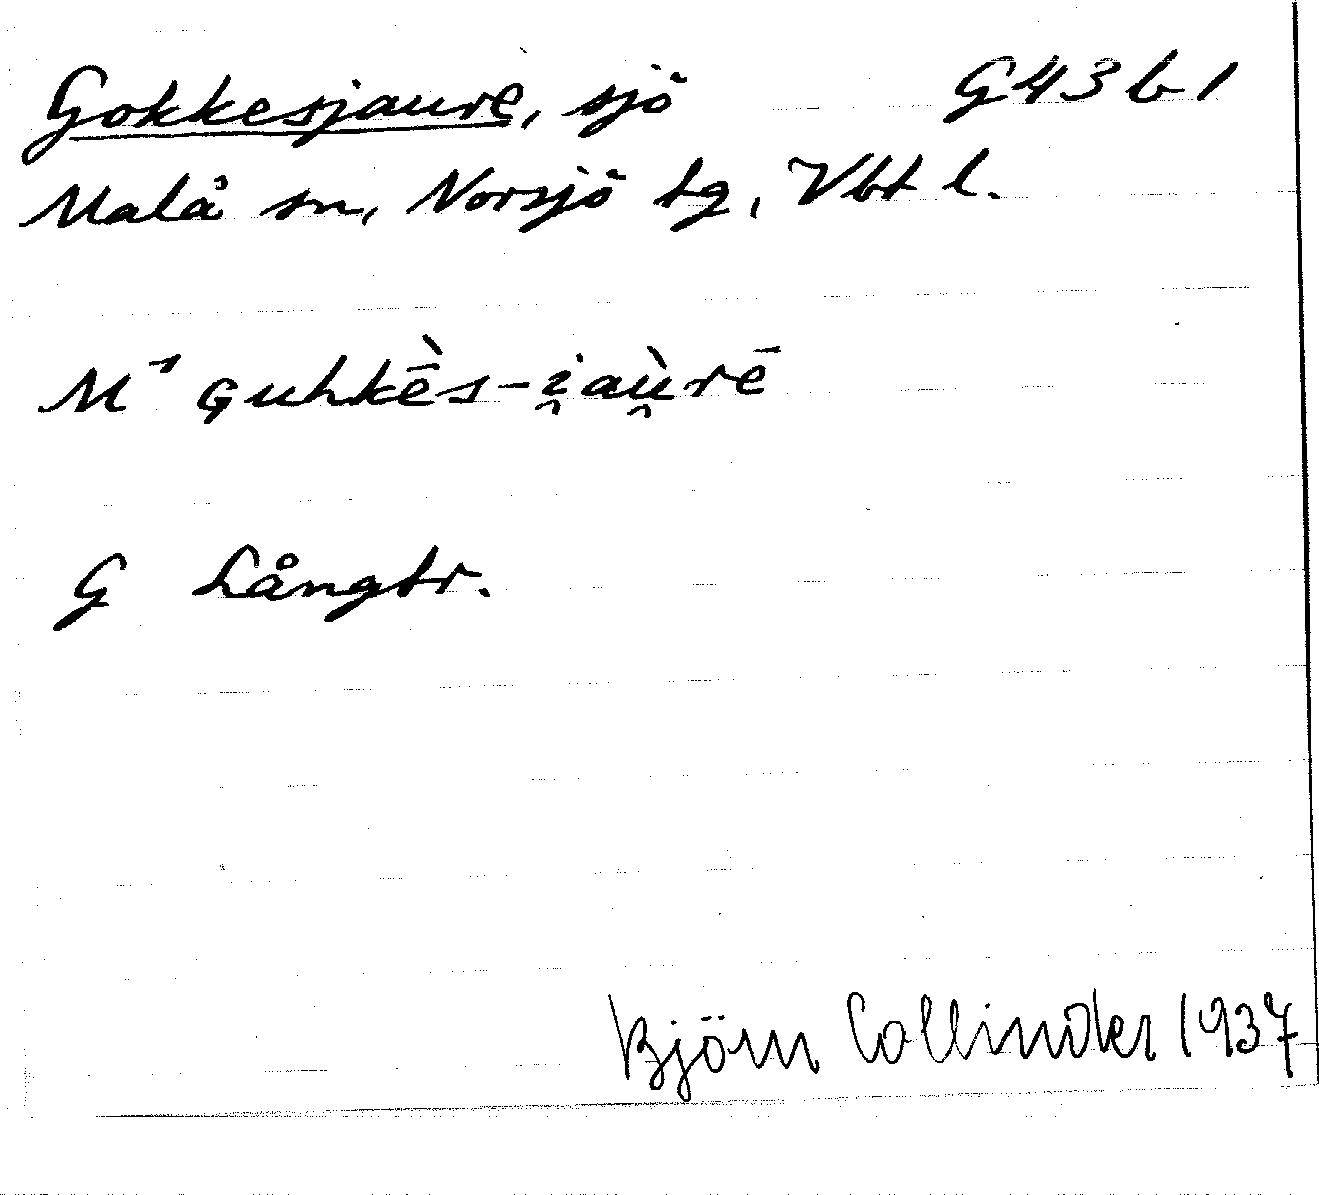 Gokkesjaure, sjö G43b1
Malå sn, Norsjö tg, Vbt l.
M¹ guhkḕs-i̯aù̯rē
G Långtr.
Björn Collinder 1937